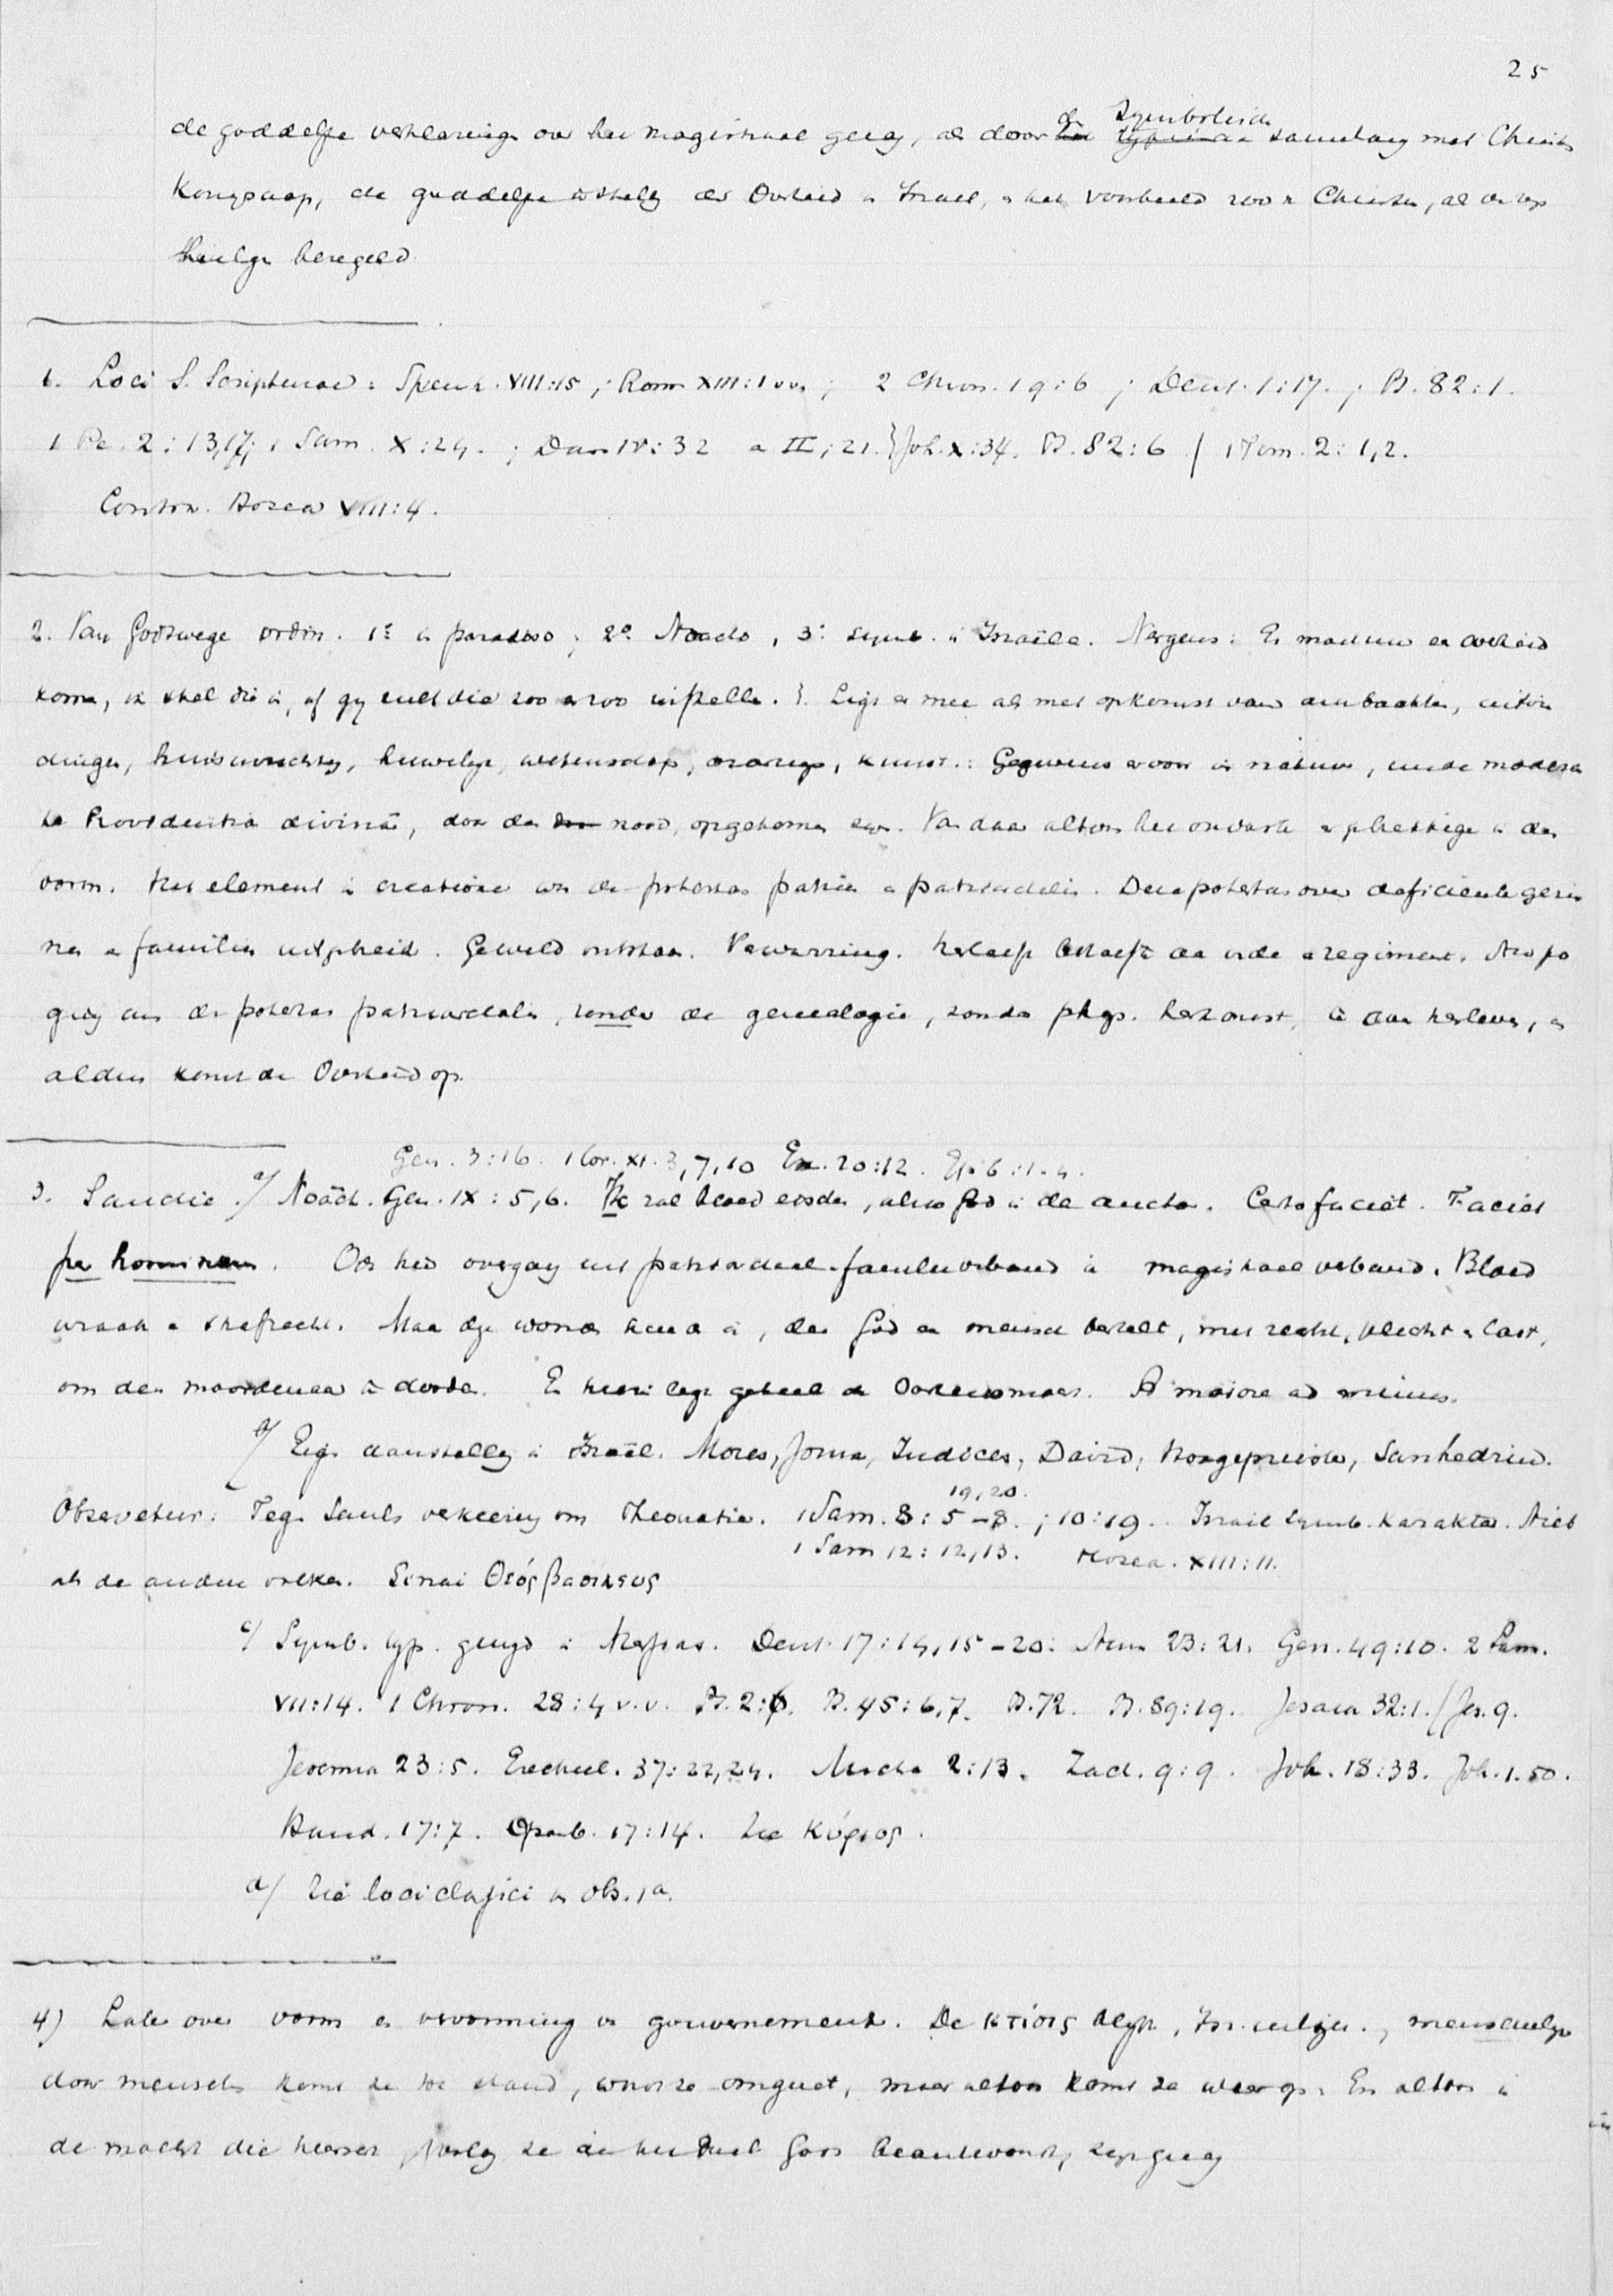 25
de goddelijke verklaring over het magistraal gezag, als door de symbolische samenhang met Christus
Koningschap, de goddelijke instelling der Overheid in Israel, en het voorbeeld van Christus, als
heilige
1. Loci S. Scripturae: Spreuk. VIII:15; Rom XIII:1 vv.; 2 Chron. 19:6; Deut. 1:17.; Ps. 82:1.
1 Pe. 2:13,17; 1 Sam. X:24.; Dan IV:32 en II:21. } Joh. X:34. Ps. 82:6 / 1 Tim. 2:1,2.
Contra. Hosea VIII:4.
2. Van Godswege ordin. 1º in paradiso; 2º Noacho, 3º symb. in Israële. Nergens: Er moet nu een overheid
komen, ik stel die in, of gij zult die zoo en zoo instellen. Ligt er mee als met opkomst van ambachten,
dingen, huisinrichting, huwelijk, wetenschap, kunst.: Gegevens ervoor in natuur, en de
Providentia divina, door den nood, opgekomen. Van daar altoos het onvaste en plastische in den
vorm. Het element in creatione was de potestas patria en patriarchalis. Deze potestas over gezin
nen en familien uitgebreid. Geweld ontstaan. Verwarring. behoefte aan orde en regiment.
ging om de potestas patriarchalis, zonder de genealogie, zonder phys. herkomst, te doen herleven, en
aldus komt de Overheid op.
Gen. 3:16. 1 Cor. XI. 3,7,10 Ex. 20:12. Ef. 6:1-4.
3. Sanctie. a/ Noach. Gen. IX:5,6. Ik zal bloed eischen, alzoo God is de auctor. Certo faciet. Faciet
per hominem. Ook hier overgang uit patriarchaal-familieverband in magistraal verband. Bloed
wraak en strafrecht. Maar deze wonde houdt in, dat God een mensch bekleedt, met recht, plicht en last,
om den moordenaar te dooden. En hierin ligt geheel de Overheidsmacht. A maiore ad minus.
b/ Eig. aanstelling in Israël. Mozes, Jozua, Iudices, David, Hoogepriester, Sanhedrin.
Observetur: Tegen Sauls verkiezing om Theocratie. 1 Sam. 8:5-8. 19,20.; 10:19. Israel symb. karakter. Niet
1 Sam 12:12,13. Hosea. XIII:11.
als de andere volken. Sinai Θεός βασιλευς
c/ Symb. typ. gezag in Messias. Deut. 17:14,15-20. Num 23:21. Gen. 49:10. 2 Sam.
VII:14. 1 Chron. 28:4 v.v. Ps. 2:6. Ps. 45:6,7. Ps. 72. Ps. 89:19. Jesaia 32:1. / Jes. 9.
Jeremia 23:5. Ezechiel. 37:22,24. Micha 2:13. Zach. 9:9. Joh. 18:33. Joh. 1.50.
Hand. 17:7. Openb. 17:14. Zie Κύριος.
d/ Zie loci classici in obs. 1a.
4) Later over vorm en vervorming van gouvernement. De κτίσις blijft, menschelijk
door menschen komt ze tot stand, wordt ze omgezet, maar altoos komt ze weer op. En altoos is
de macht die heerscht, mits ze aan het doel Gods beantwoordt, zijn gezag